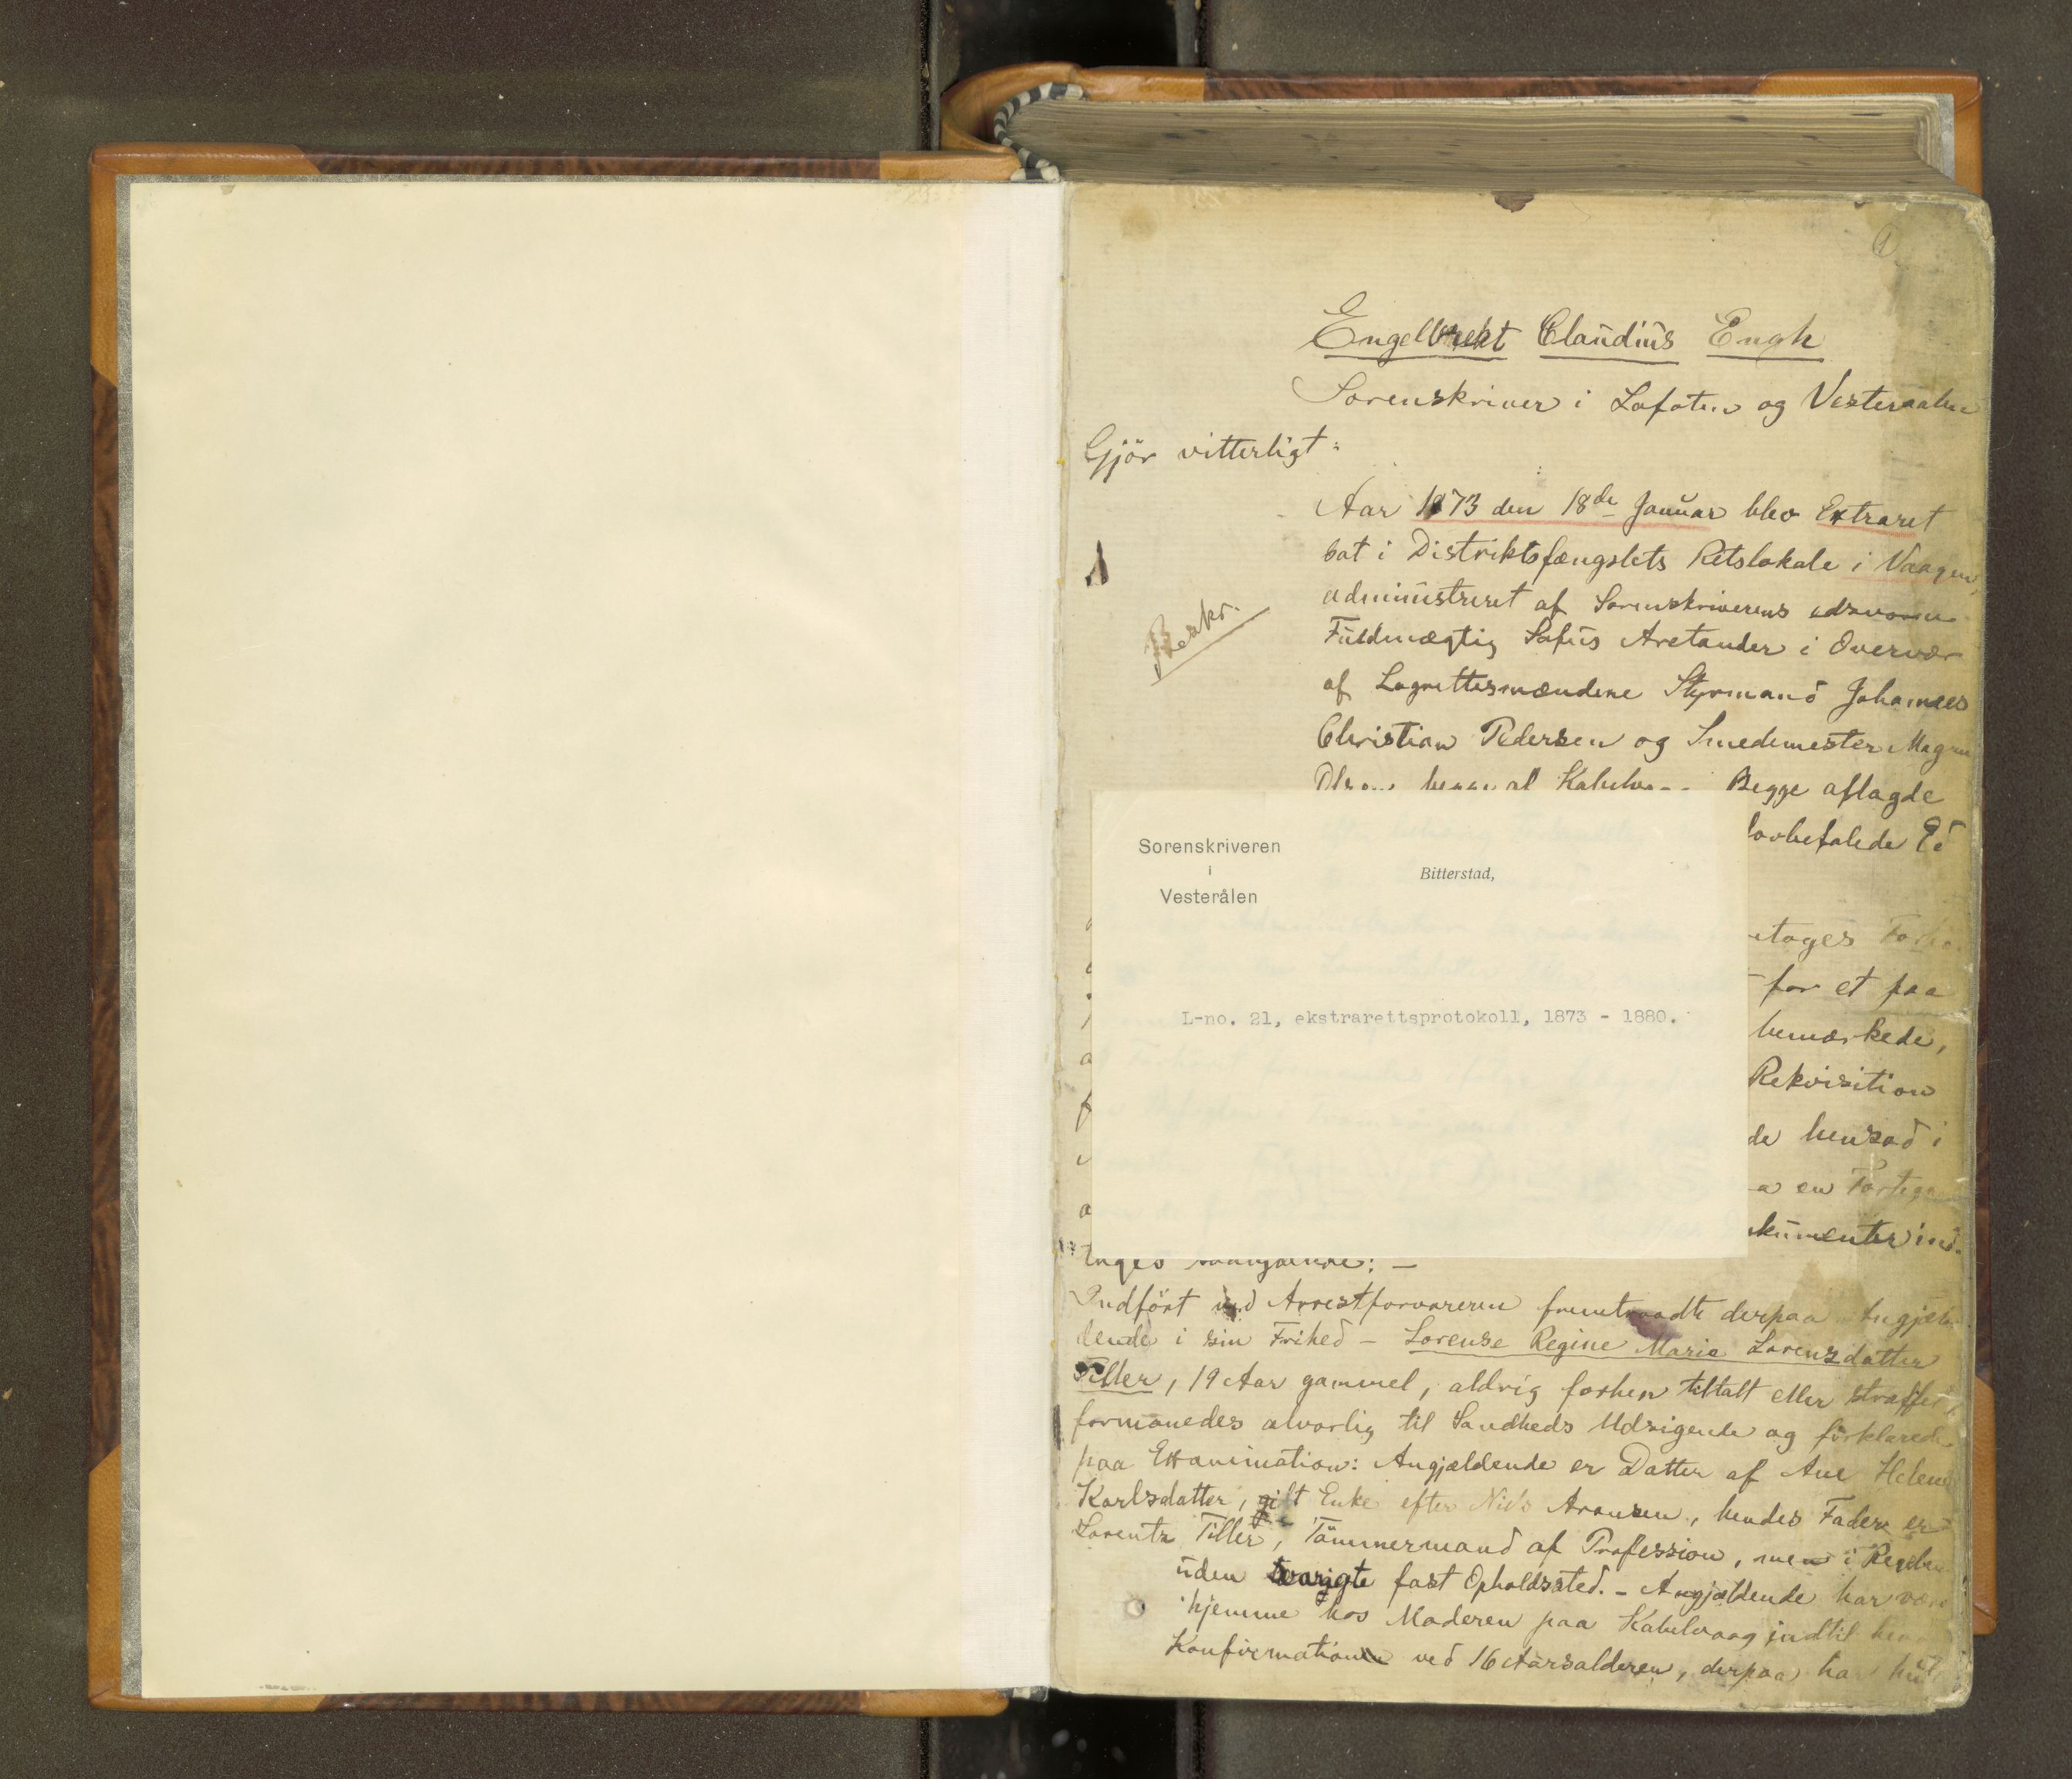 1
Engelbrekt Claudius Engh
Sorenskriver i Lofoten og Vesteraalen
Gjör vitterligt:
Aar 1873 den 18de Januar blev Extraret
sat i Distriktsfængslets Retslokale i Vaagen,
administreret af Sorenskriverens edsvorne
1
Beskr.
Fuldmægtig Sofus Aretander i Overvær
af Lagrettesmændene Styrmand Johannes
Christian Pedersen og Smedemester Magnus
Begge aflagde
lovbefalede Ed
Sorenskriveren
i
Vesterålen
Bitterstad,
L-no. 21, ekstrarettsprotokoll, 1873 - 1880.
etages
for et paa
bemærkede,
Rekvisition
de hensad i
en
ind-
Indfört ved Arrestforvareren fremtraadte derpaa Angjæl-
dende i sin Frihed - Lorense Regine Marie Lorenzdatter
Tiller, 19 Aar gammel, aldrig forhen tiltalt eller straffet,
formanedes alvorlig til Sandheds Udsigende og forklarede
paa Examination: Angjældende er Datter af Ane Helene
Karlsdatter, gift Enke efter Nils Aronsen, hendes Fader er
Lorentz Tiller, Tömmermand af Profession, men i Regelen
uden fast Opholdssted. - Angjældende har være
hjemme hos Moderen paa Kabelvaag indtil
Konfirmationen ved 16 Aarsalderen, derpaa har hun